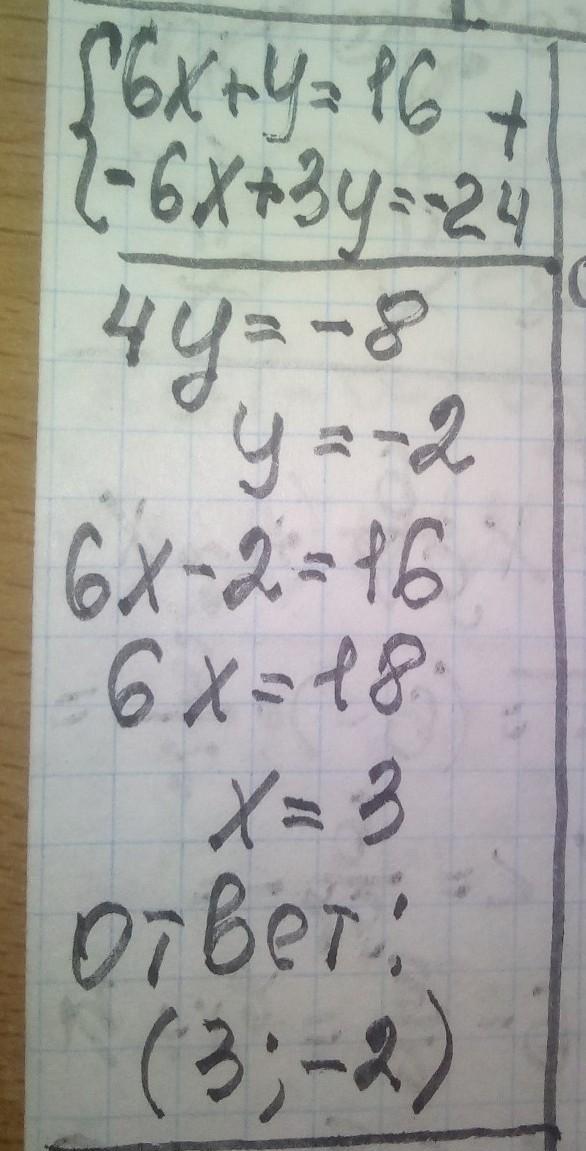 {6x+y=16 +
-6x+3y=-24
4y=-8
y=-2
6x-2=16
6x=18
x=3
ответ:
(3;-2)